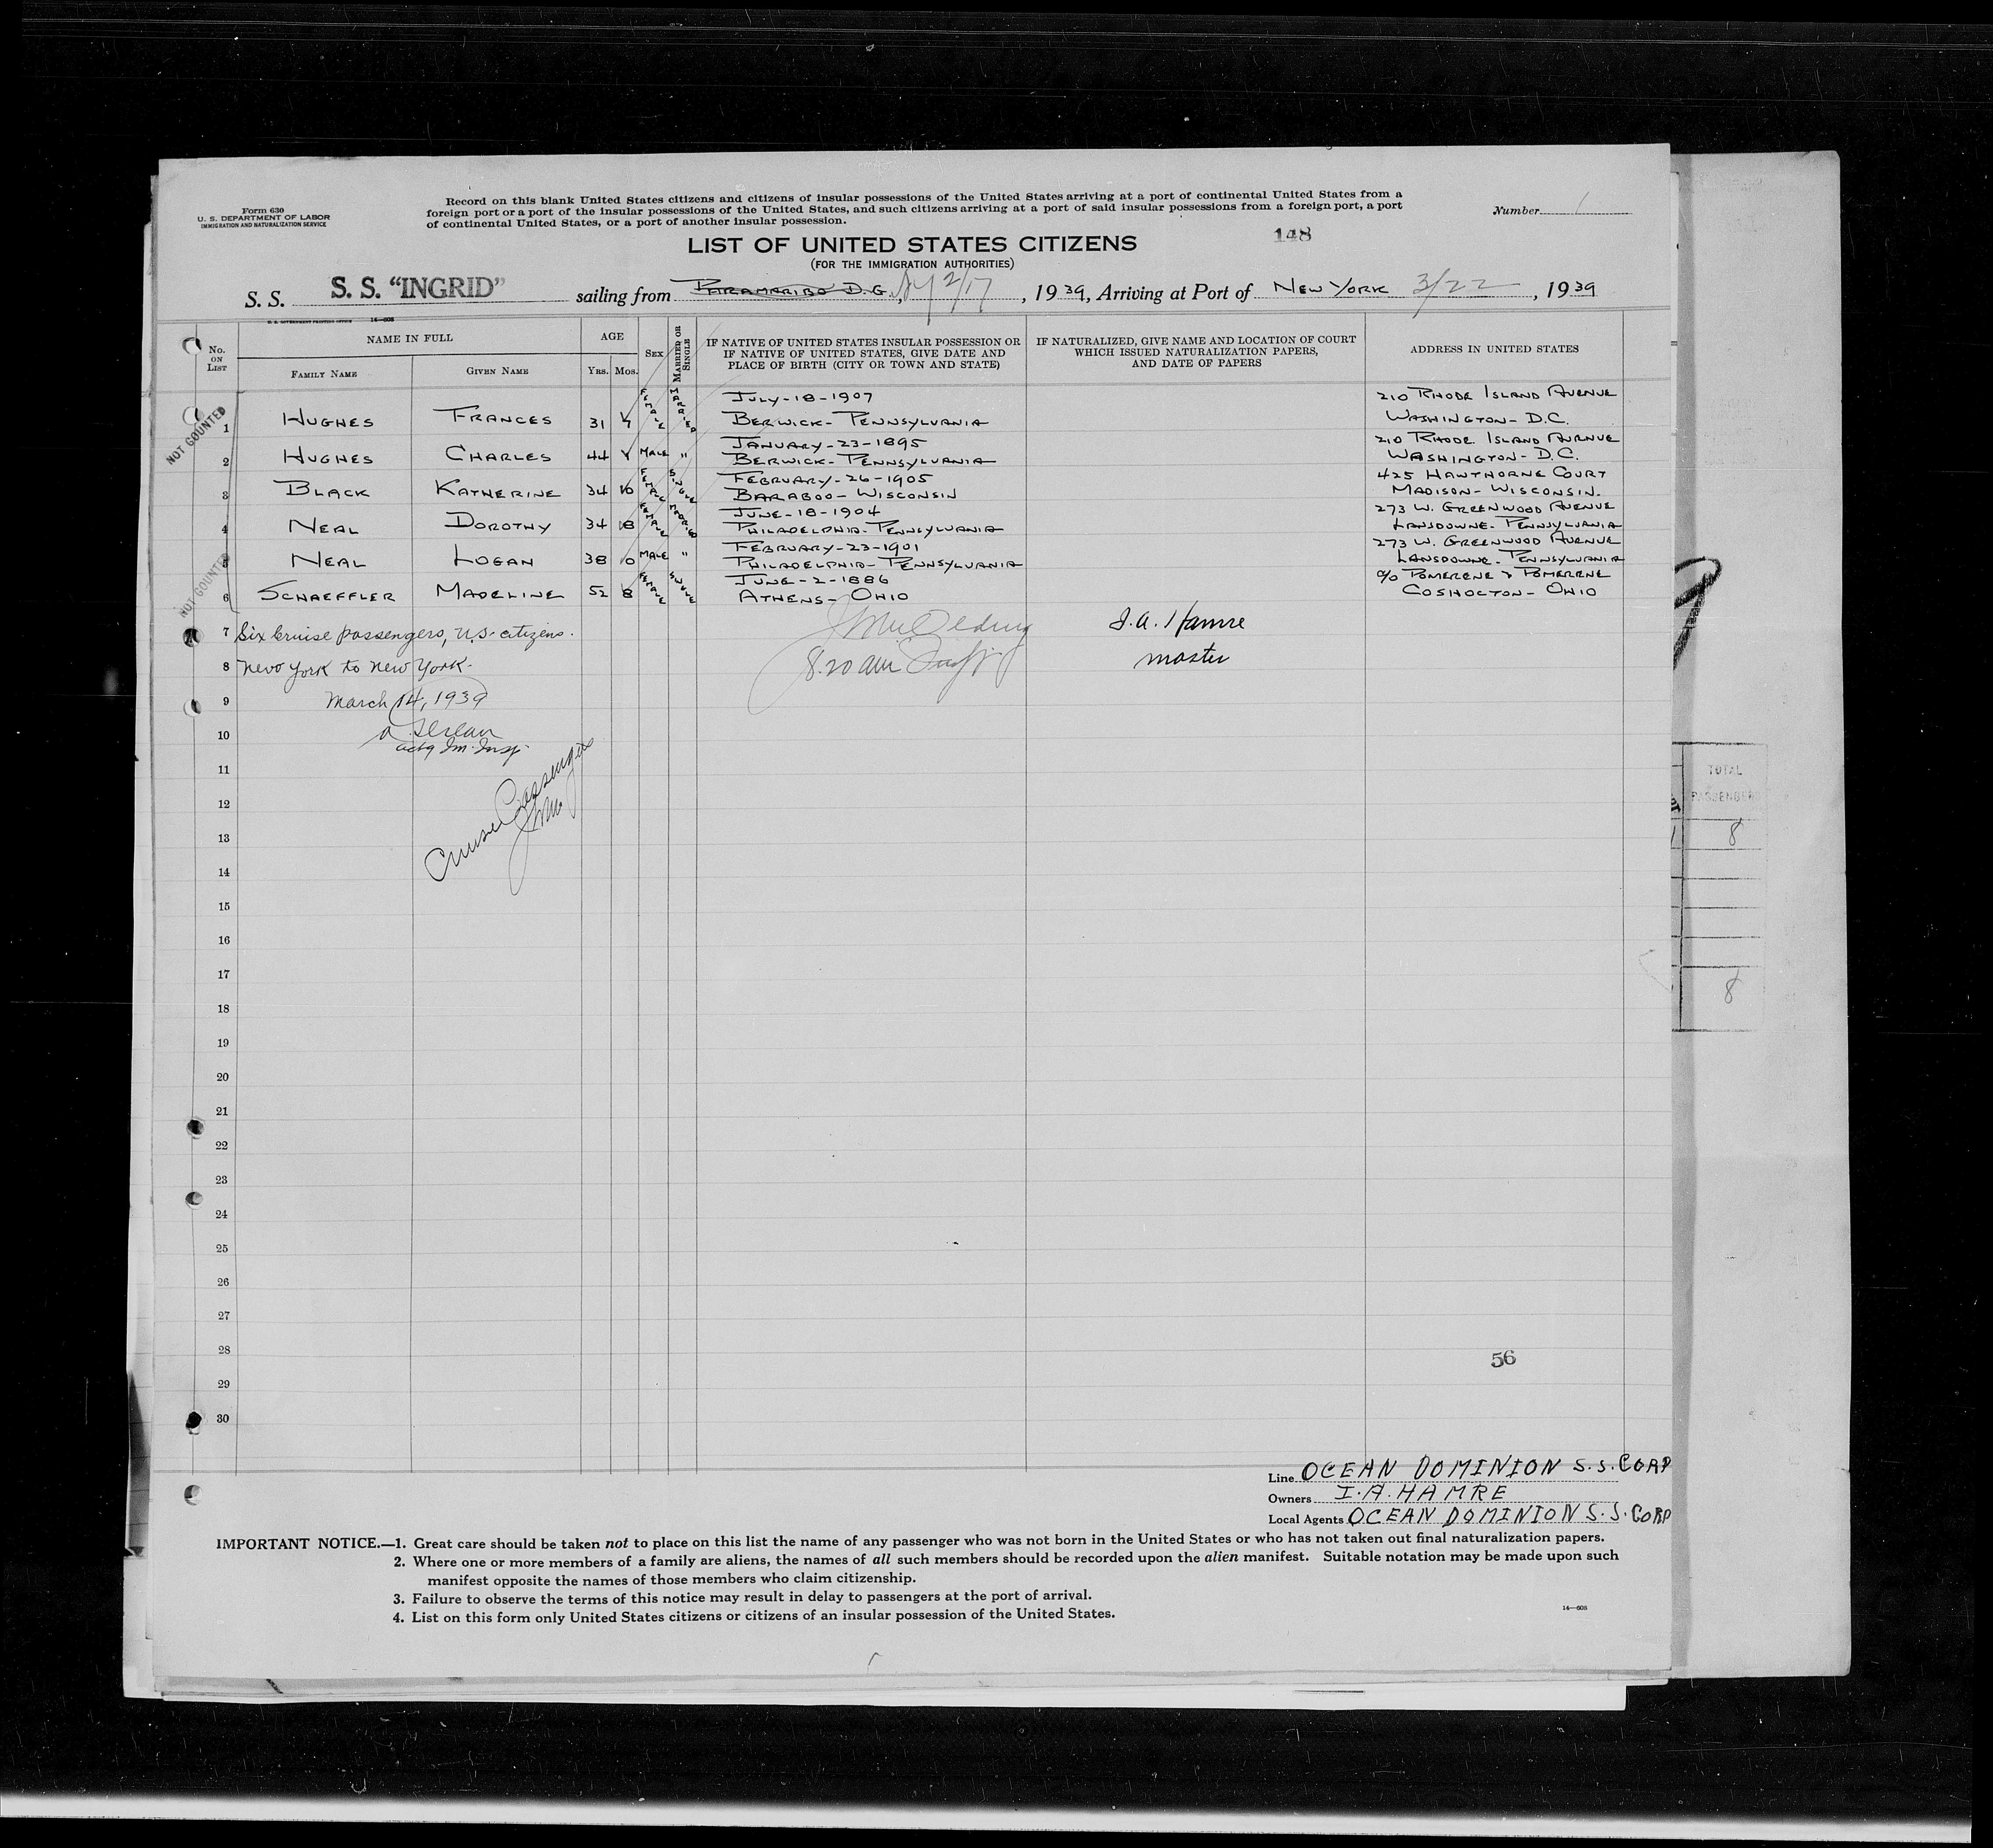 Form 630
U. S. DEPARTMENT OF LABOR
IMMIGRATION AND NATURALIZATION SERVICE
Record on this blank United States citizens and citizens of insular possessions of the United States arriving at a port of continental United States from a
foreign port or a port of the insular possessions of the United States, and such citizens arriving at a port of said insular possessions from a foreign port, a port
of continental United States, or a port of another insular possession.
Number 1
LIST OF UNITED STATES CITIZENS
148
(FOR THE IMMIGRATION AUTHORITIES)
S. S. S. S. "INGRID" sailing from PARAMARIBO D.G. NY 2/17, 1939, Arriving at Port of NEW YORK 3/22, 1939
U. S. GOVERNMENT PRINTING OFFICE 14—608
No. ON LIST
NAME IN FULL
FAMILY NAME
GIVEN NAME
AGE
YRS. MOS.
SEX
MARRIED OR SINGLE
IF NATIVE OF UNITED STATES INSULAR POSSESSION OR
IF NATIVE OF UNITED STATES, GIVE DATE AND
PLACE OF BIRTH (CITY OR TOWN AND STATE)
IF NATURALIZED, GIVE NAME AND LOCATION OF COURT
WHICH ISSUED NATURALIZATION PAPERS,
AND DATE OF PAPERS
ADDRESS IN UNITED STATES
NOT COUNTED
JULY-18-1907 210 RHODE ISLAND AVENUE
1 HUGHES FRANCES 31 FEMALE MARRIED BERWICK- PENNSYLVANIA WASHINGTON- D.C.
JANUARY-23-1895 210 RHODE ISLAND AVENUE
2 HUGHES CHARLES 44 MALE " BERWICK- PENNSYLVANIA WASHINGTON- D.C.
FEBRUARY-26-1905 425 HAWTHORNE COURT
3 BLACK KATHERINE 34 10 FEMALE SINGLE BARABOO- WISCONSIN MADISON- WISCONSIN.
JUNE-18-1904 273 W. GREENWOOD AVENUE
4 NEAL DOROTHY 34 8 FEMALE MARRIED PHILADELPHIA- PENNSYLVANIA LANSDOWNE- PENNSYLVANIA
FEBRUARY-23-1901 273 W. GREENWOOD AVENUE
5 NEAL LOGAN 38 0 MALE " PHILADELPHIA- PENNSYLVANIA LANSDOWNE- PENNSYLVANIA
JUNE-2-1886 c/o POMERENE & POMERENE
6 SCHAEFFLER MADELINE 52 8 FEMALE SINGLE ATHENS- OHIO COSHOCTON- OHIO
NOT COUNTED
7 Six cruise passengers, U.S. citizens. I.A. Hamre
8 New York to New York. 8:20 am master
9 March 14, 1939
10
actg Im. Insp.
11
12
Cruise Passengers
13
14
15
16
17
18
19
20
21
22
23
24
25
26
27
28
56
29
30
TOTAL
PASSENGER
8
8
Line OCEAN DOMINION S.S. CORP
Owners I.A. HAMRE
Local Agents OCEAN DOMINION S.S. CORP
IMPORTANT NOTICE.—1. Great care should be taken not to place on this list the name of any passenger who was not born in the United States or who has not taken out final naturalization papers.
2. Where one or more members of a family are aliens, the names of all such members should be recorded upon the alien manifest. Suitable notation may be made upon such
manifest opposite the names of those members who claim citizenship.
3. Failure to observe the terms of this notice may result in delay to passengers at the port of arrival.
4. List on this form only United States citizens or citizens of an insular possession of the United States.
14—608